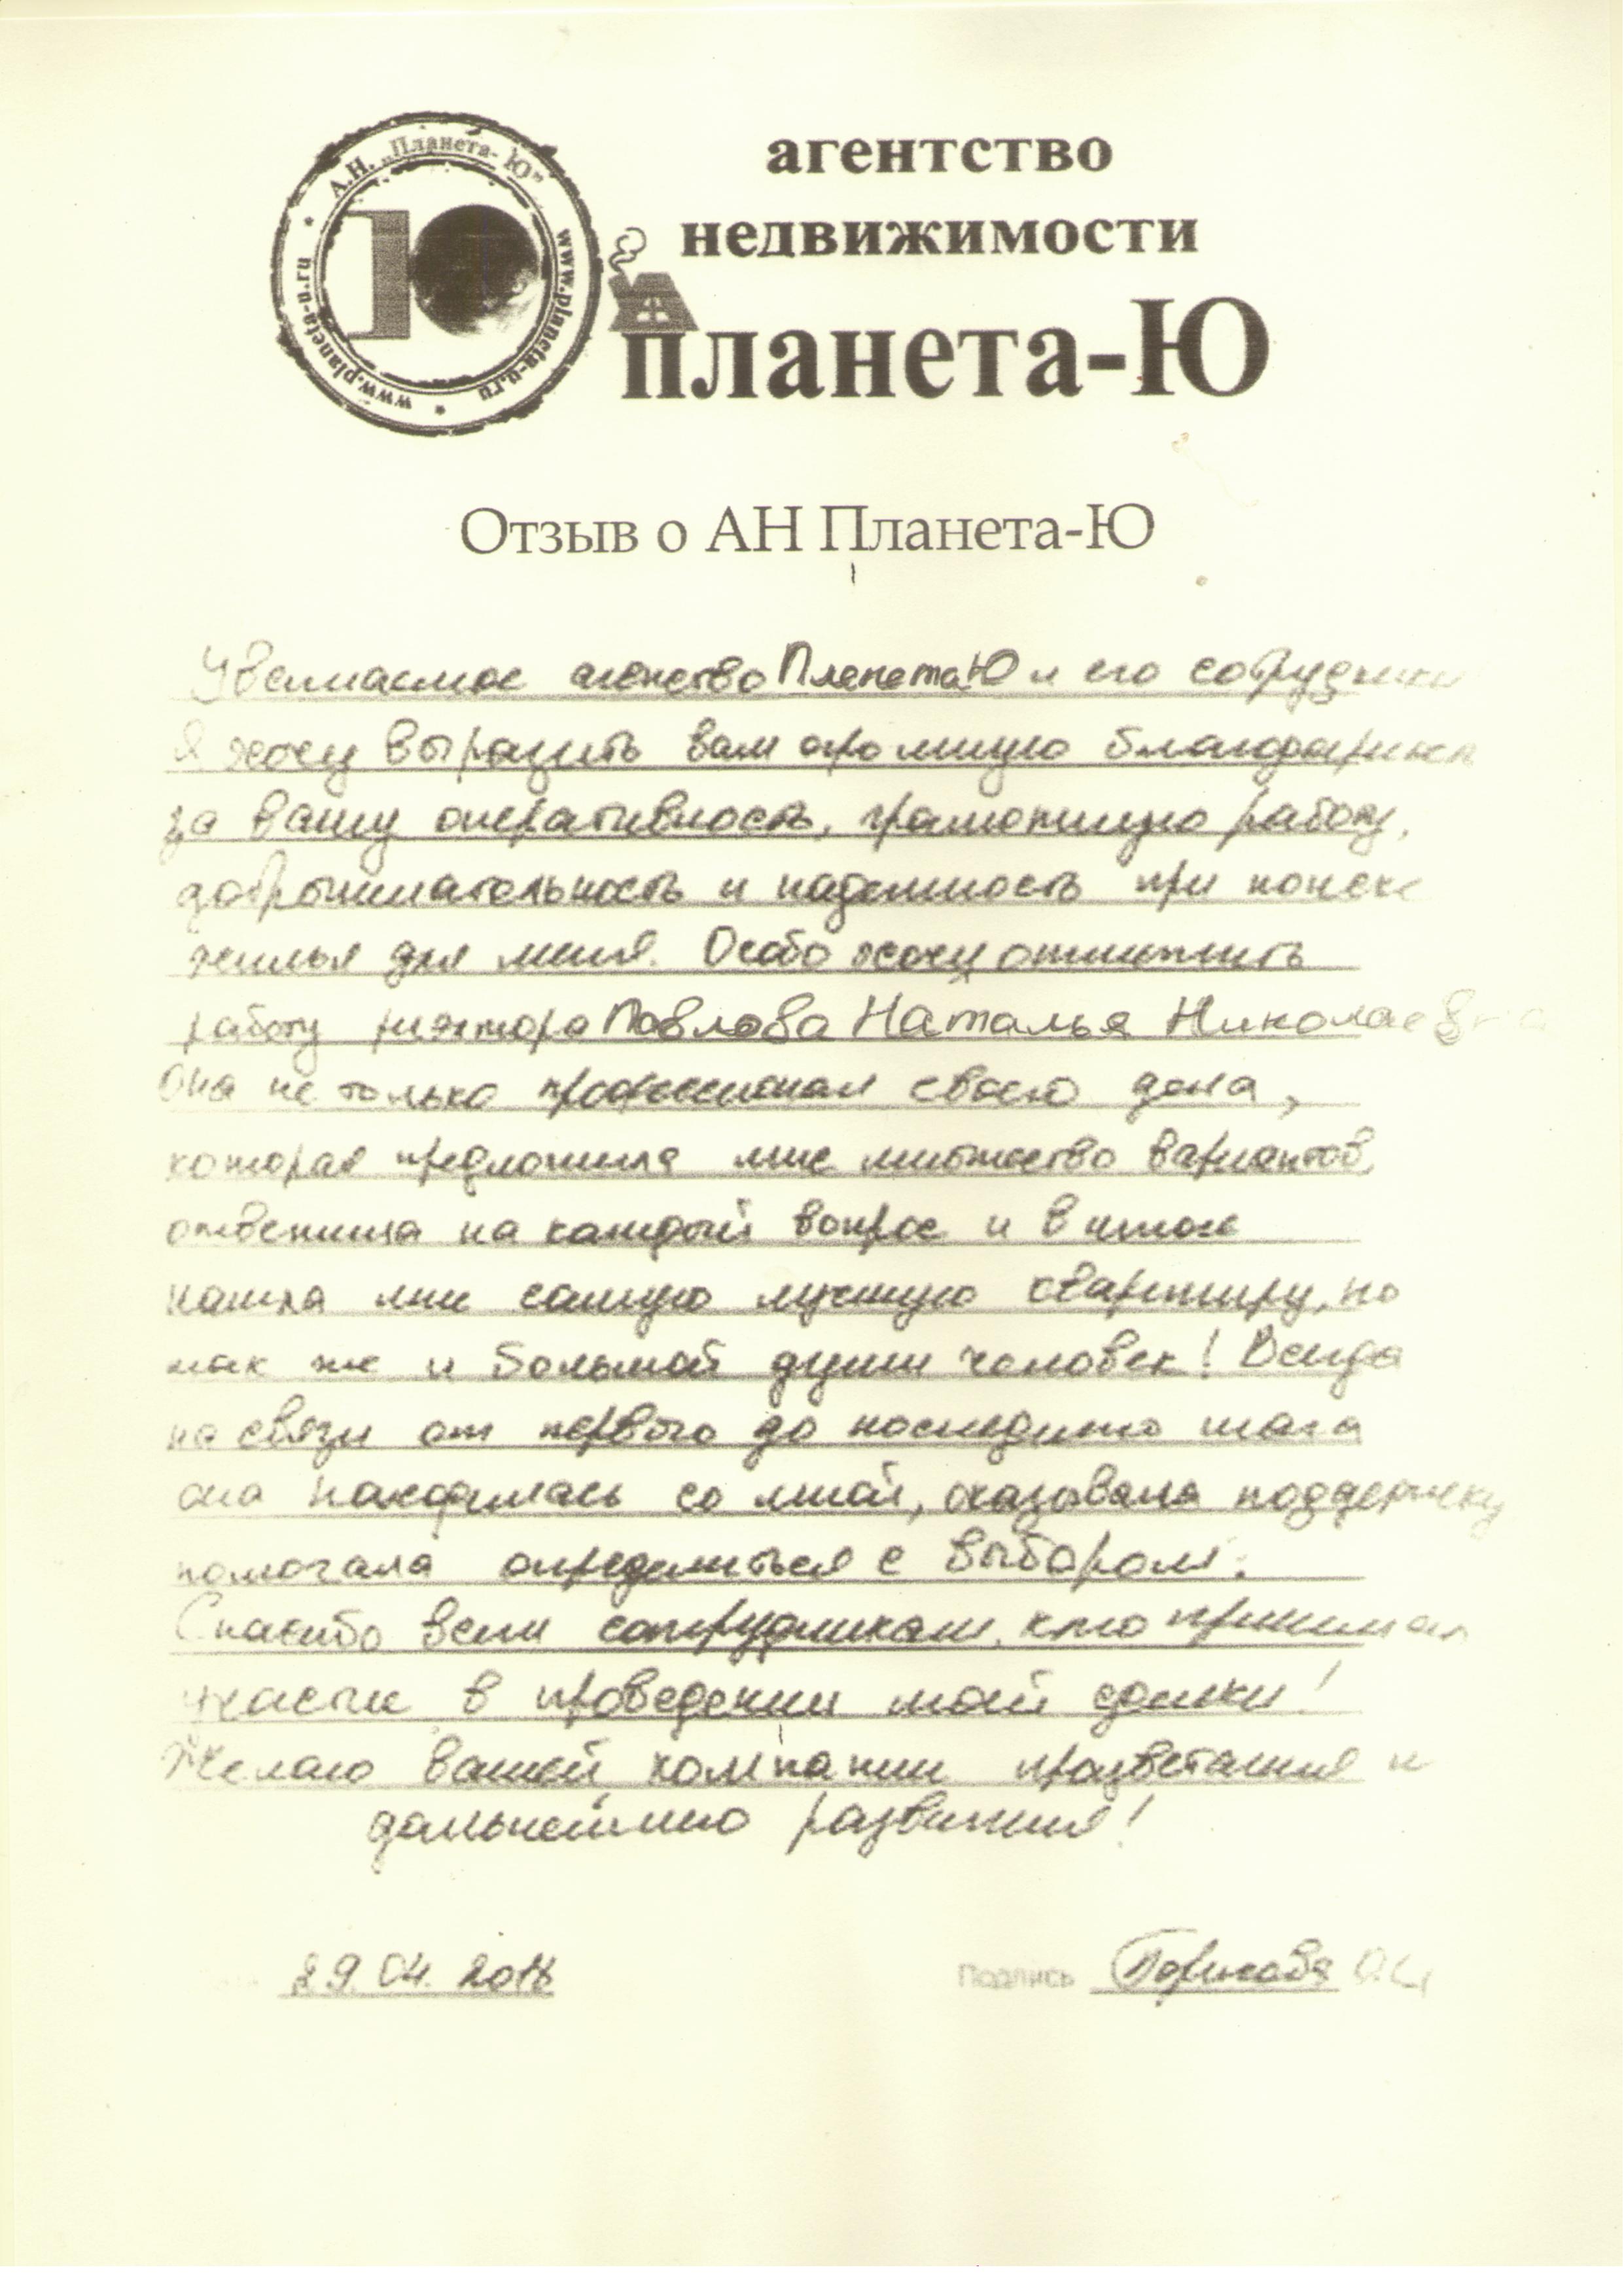 А.Н. „Планета-Ю"
www.planeta-u.ru
www.planeta-u.ru
агентство
недвижимости
планета-Ю
Отзыв о АН Планета-Ю
Уважаемое агенство Планета Ю и его сотрудники
Я хочу выразить вам огромную
за вашу оперативность, грамотную работу,
и надежность при поиске
жилья для меня. Особо хочу отметить
работу риэлтора Павлова Наталья Николаевна
Она не только профессионал своего дела,
которая предложила мне множество вариантов,
ответила на каждый вопрос и в итоге
нашла мне самую лучшую квартиру, но
так же и большой души человек! Всегда
на связи от первого до последнего шага
она находилась со мной, оказывала поддержку
помогала определиться с выбором.
Спасибо всем сотрудникам, кто принимал
участие в проведении моей сделки!
Желаю вашей компании процветания и
дальнейшего развития!
29.04.
Подпись